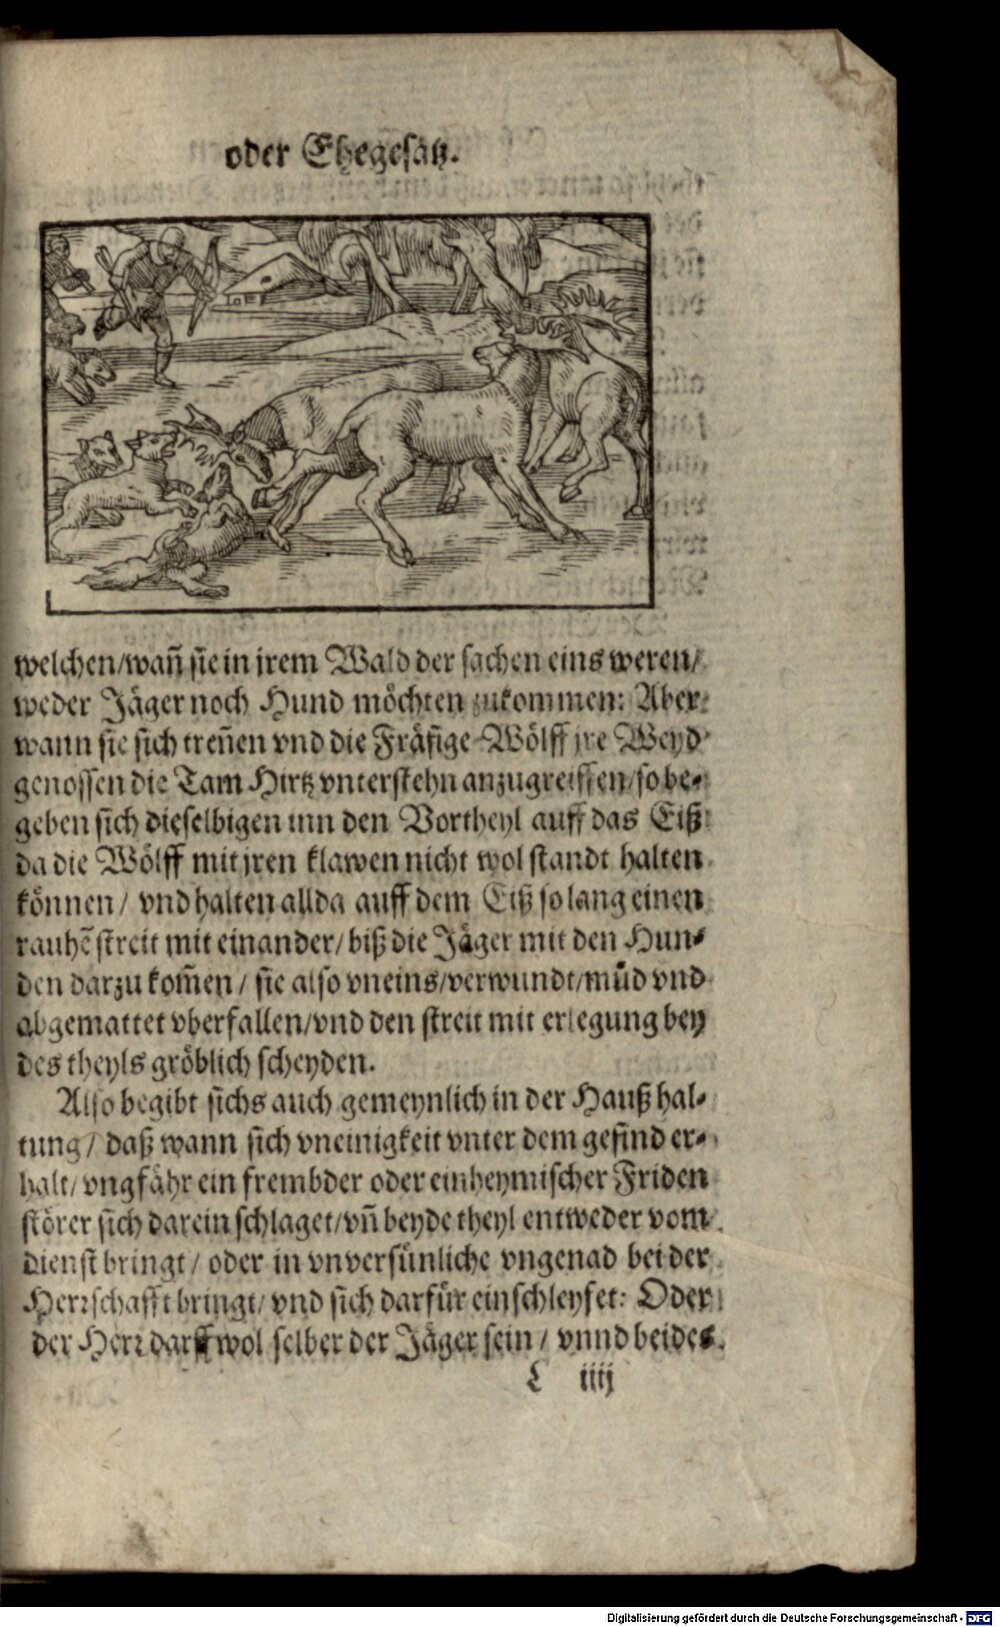 oder Ehegesätz.
welchen/wañ sie in jrem Wald der sachen eins weren/
weder Jäger noch Hund möchten zukommen: Aber
wann sie sich treñen vnd die Fräsige Wölff jre Weyd
genossen die Tam Hirtz vnterstehn anzugreiffen/so be-
geben sich dieselbigen inn den Vortheyl auff das Eiß
da die Wölff mit jren klawen nicht wol standt halten
können/ vnd halten allda auff dem Eiß so lang einen
rauhẽ streit mit einander/ biß die Jäger mit den Hun-
den darzu kom̃en/ sie also vneins/verwundt/můd vnd
abgemattet vberfallen/vnd den streit mit erlegung bey
des theyls gröblich scheyden.
Also begibt sichs auch gemeynlich in der Hauß hal-
tung/ daß wann sich vneinigkeit vnter dem gesind er-
halt/ vngfähr ein frembder oder einheymischer Friden
störer sich darein schlaget/vñ beyde theyl entweder vom
dienst bringt/ oder in vnversünliche vngenad bei der
Herrschafft bringt/ vnd sich darfür einschleyfet: Oder
der Herr darff wol selber der Jäger sein/ vnnd beides
L iiij
Digitalisierung gefördert durch die Deutsche Forschungsgemeinschaft - DFG